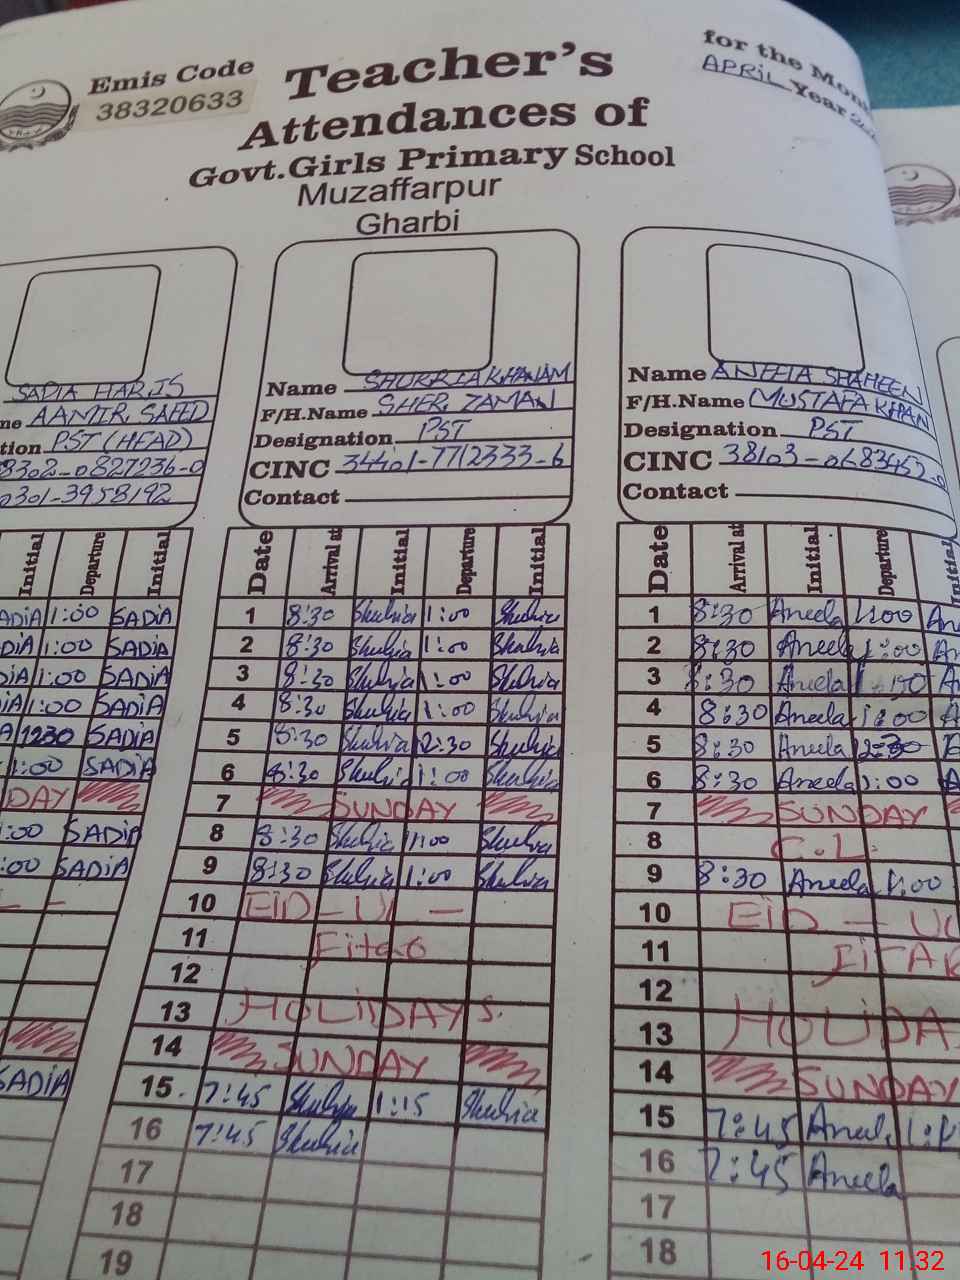 Emis Code
38320633
Teacher's
Attendances of
Govt.Girls Primary School
Muzaffarpur
Gharbi
for the Mon
APRIL Year
SADIA HARIS
me AAMIR SAEED
tion PST (HEAD)
8302-0827236-0
0301-3958192
Initial Departure Initial
ADIA 1:00 SADiA
DIA 1:00 SADiA
DIA 1:00 SADiA
iA 1:00 SADiA
A 1230 SADiA
1:00 SADiA
DAY
:00 SADiA
:00 SADiA
L -
SADIA
Name SHUKRIA KHANAM
F/H.Name SHER ZAMAN
Designation PST
CINC 34401-7712333-6
Contact
Date Arrival at Initial Departure Initial
1 8:30 Shukria 1:00 Shukria
2 8:30 Shukria 1:00 Shukria
3 8:30 Shukria 1:00 Shukria
4 8:30 Shukria 1:00 Shukria
5 8:30 Shukria 12:30 Shukria
6 8:30 Shukria 1:00 Shukria
7 SUNDAY
8 8:30 Shukria 1:00 Shukria
9 8:30 Shukria 1:00 Shukria
10 EID-UL-
11 Fitar
12
13 HOLIDAYS.
14 SUNDAY
15 7:45 Shukria 1:15 Shukria
16 7:45 Shukria
17
18
19
Name ANEELA SHAHEEN
F/H.Name MUSTAFA KHAN
Designation PST
CINC 38103-0683452-0
Contact
Date Arrival at Initial Departure Initial
1 8:30 Aneela 1:00 An
2 8:30 Aneela 1:00 An
3 8:30 Aneela 1:00 A
4 8:30 Aneela 1:00 A
5 8:30 Aneela 12:30
6 8:30 Aneela 1:00 A
7 SUNDAY
8 C.L.
9 8:30 Aneela 1:00
10 EID-UL
11 FITAR
12
13 HOLIDA
14 SUNDAY
15 7:45 Aneela 1:1
16 7:45 Aneela
17
18
16-04-24 11.32